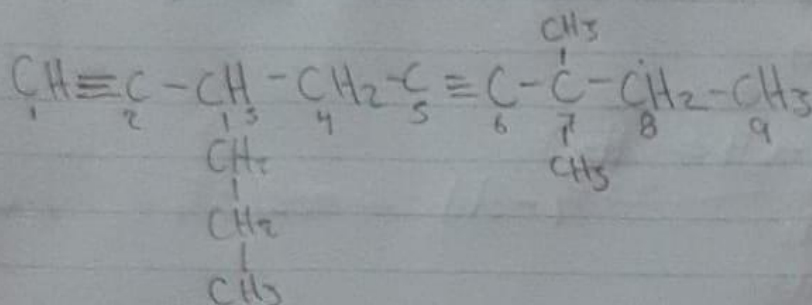 CH3
CH≡C-CH-CH2-C≡C-C-CH2-CH3
1 2 3 4 5 6 7 8 9
CH2 CH3
CH2
CH3